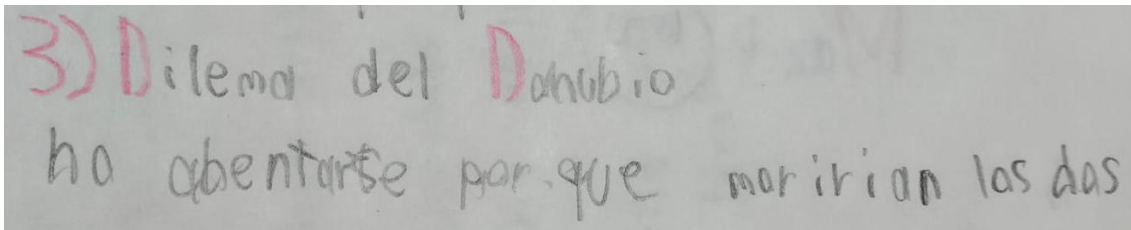 3) Dilema del Danubio
no abentarse por que moririan los dos